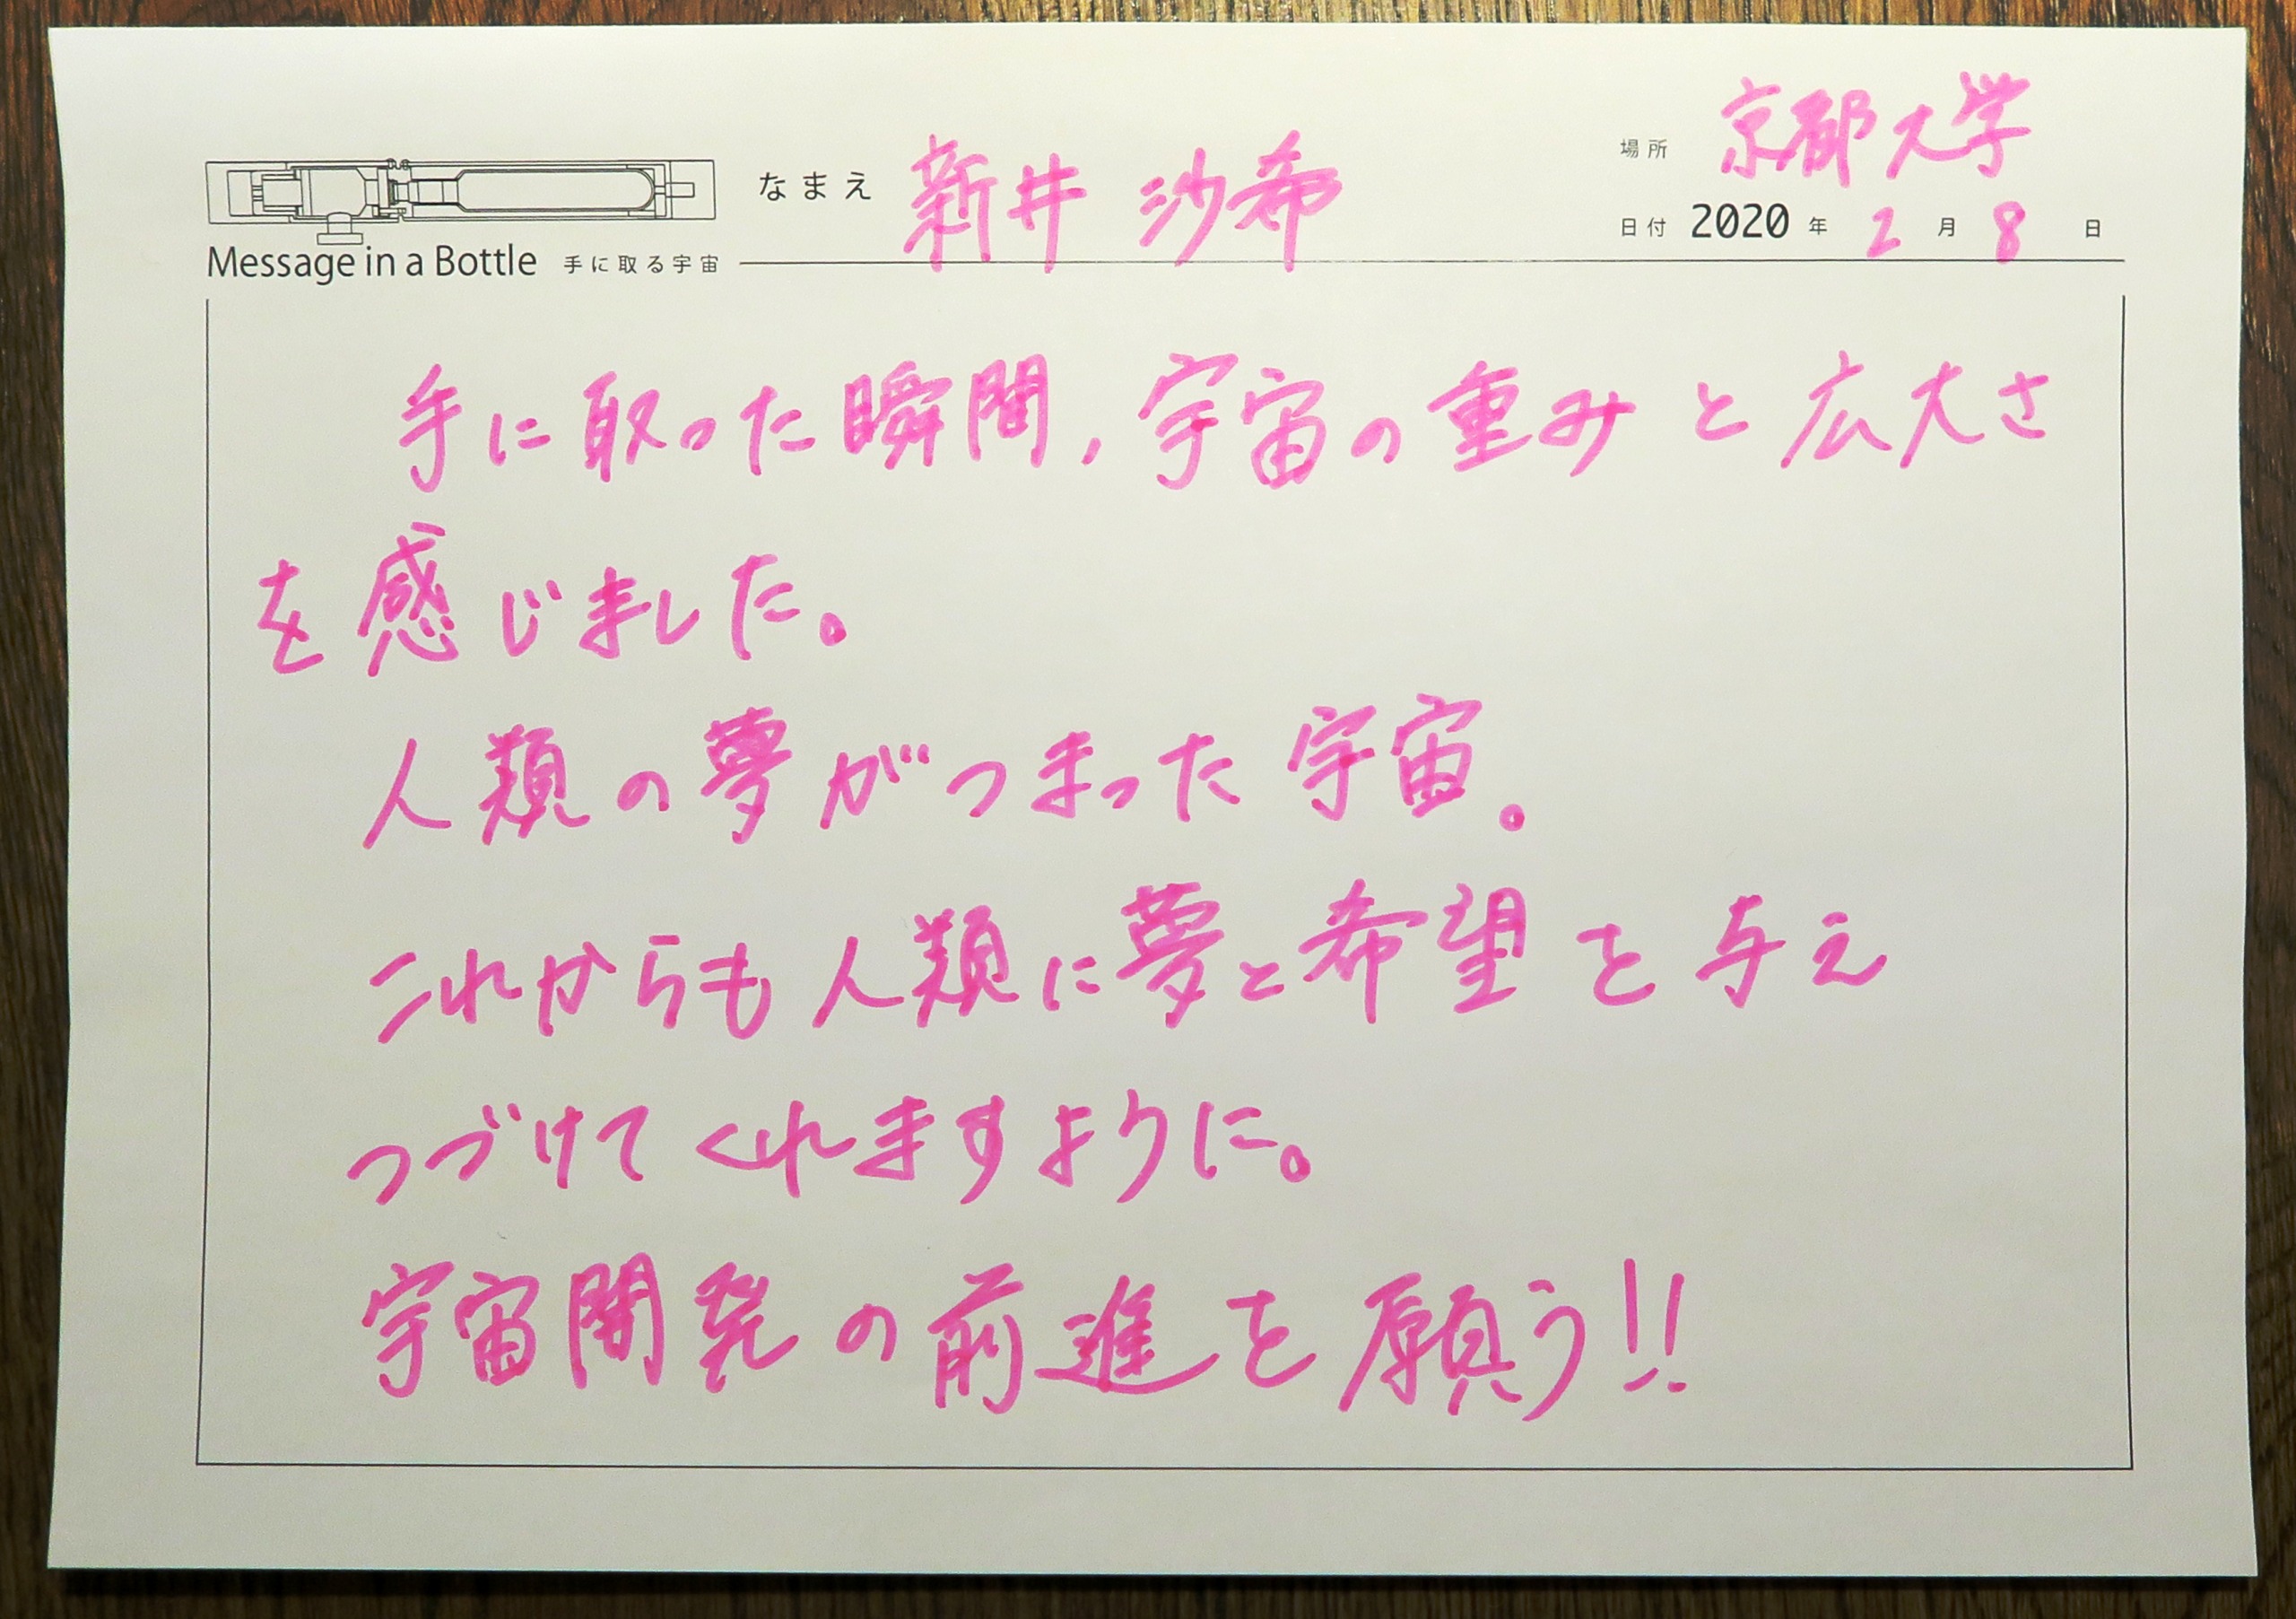 場所 京都大学
なまえ 新井 沙希
日付 2020 年 2 月 8 日
Message in a Bottle 手に取る宇宙
手に取った瞬間,宇宙の重みと広大さ
を感じました。
人類の夢がつまった宇宙。
これからも人類に夢と希望を与え
つづけてくれますように。
宇宙開発の前進を願う!!